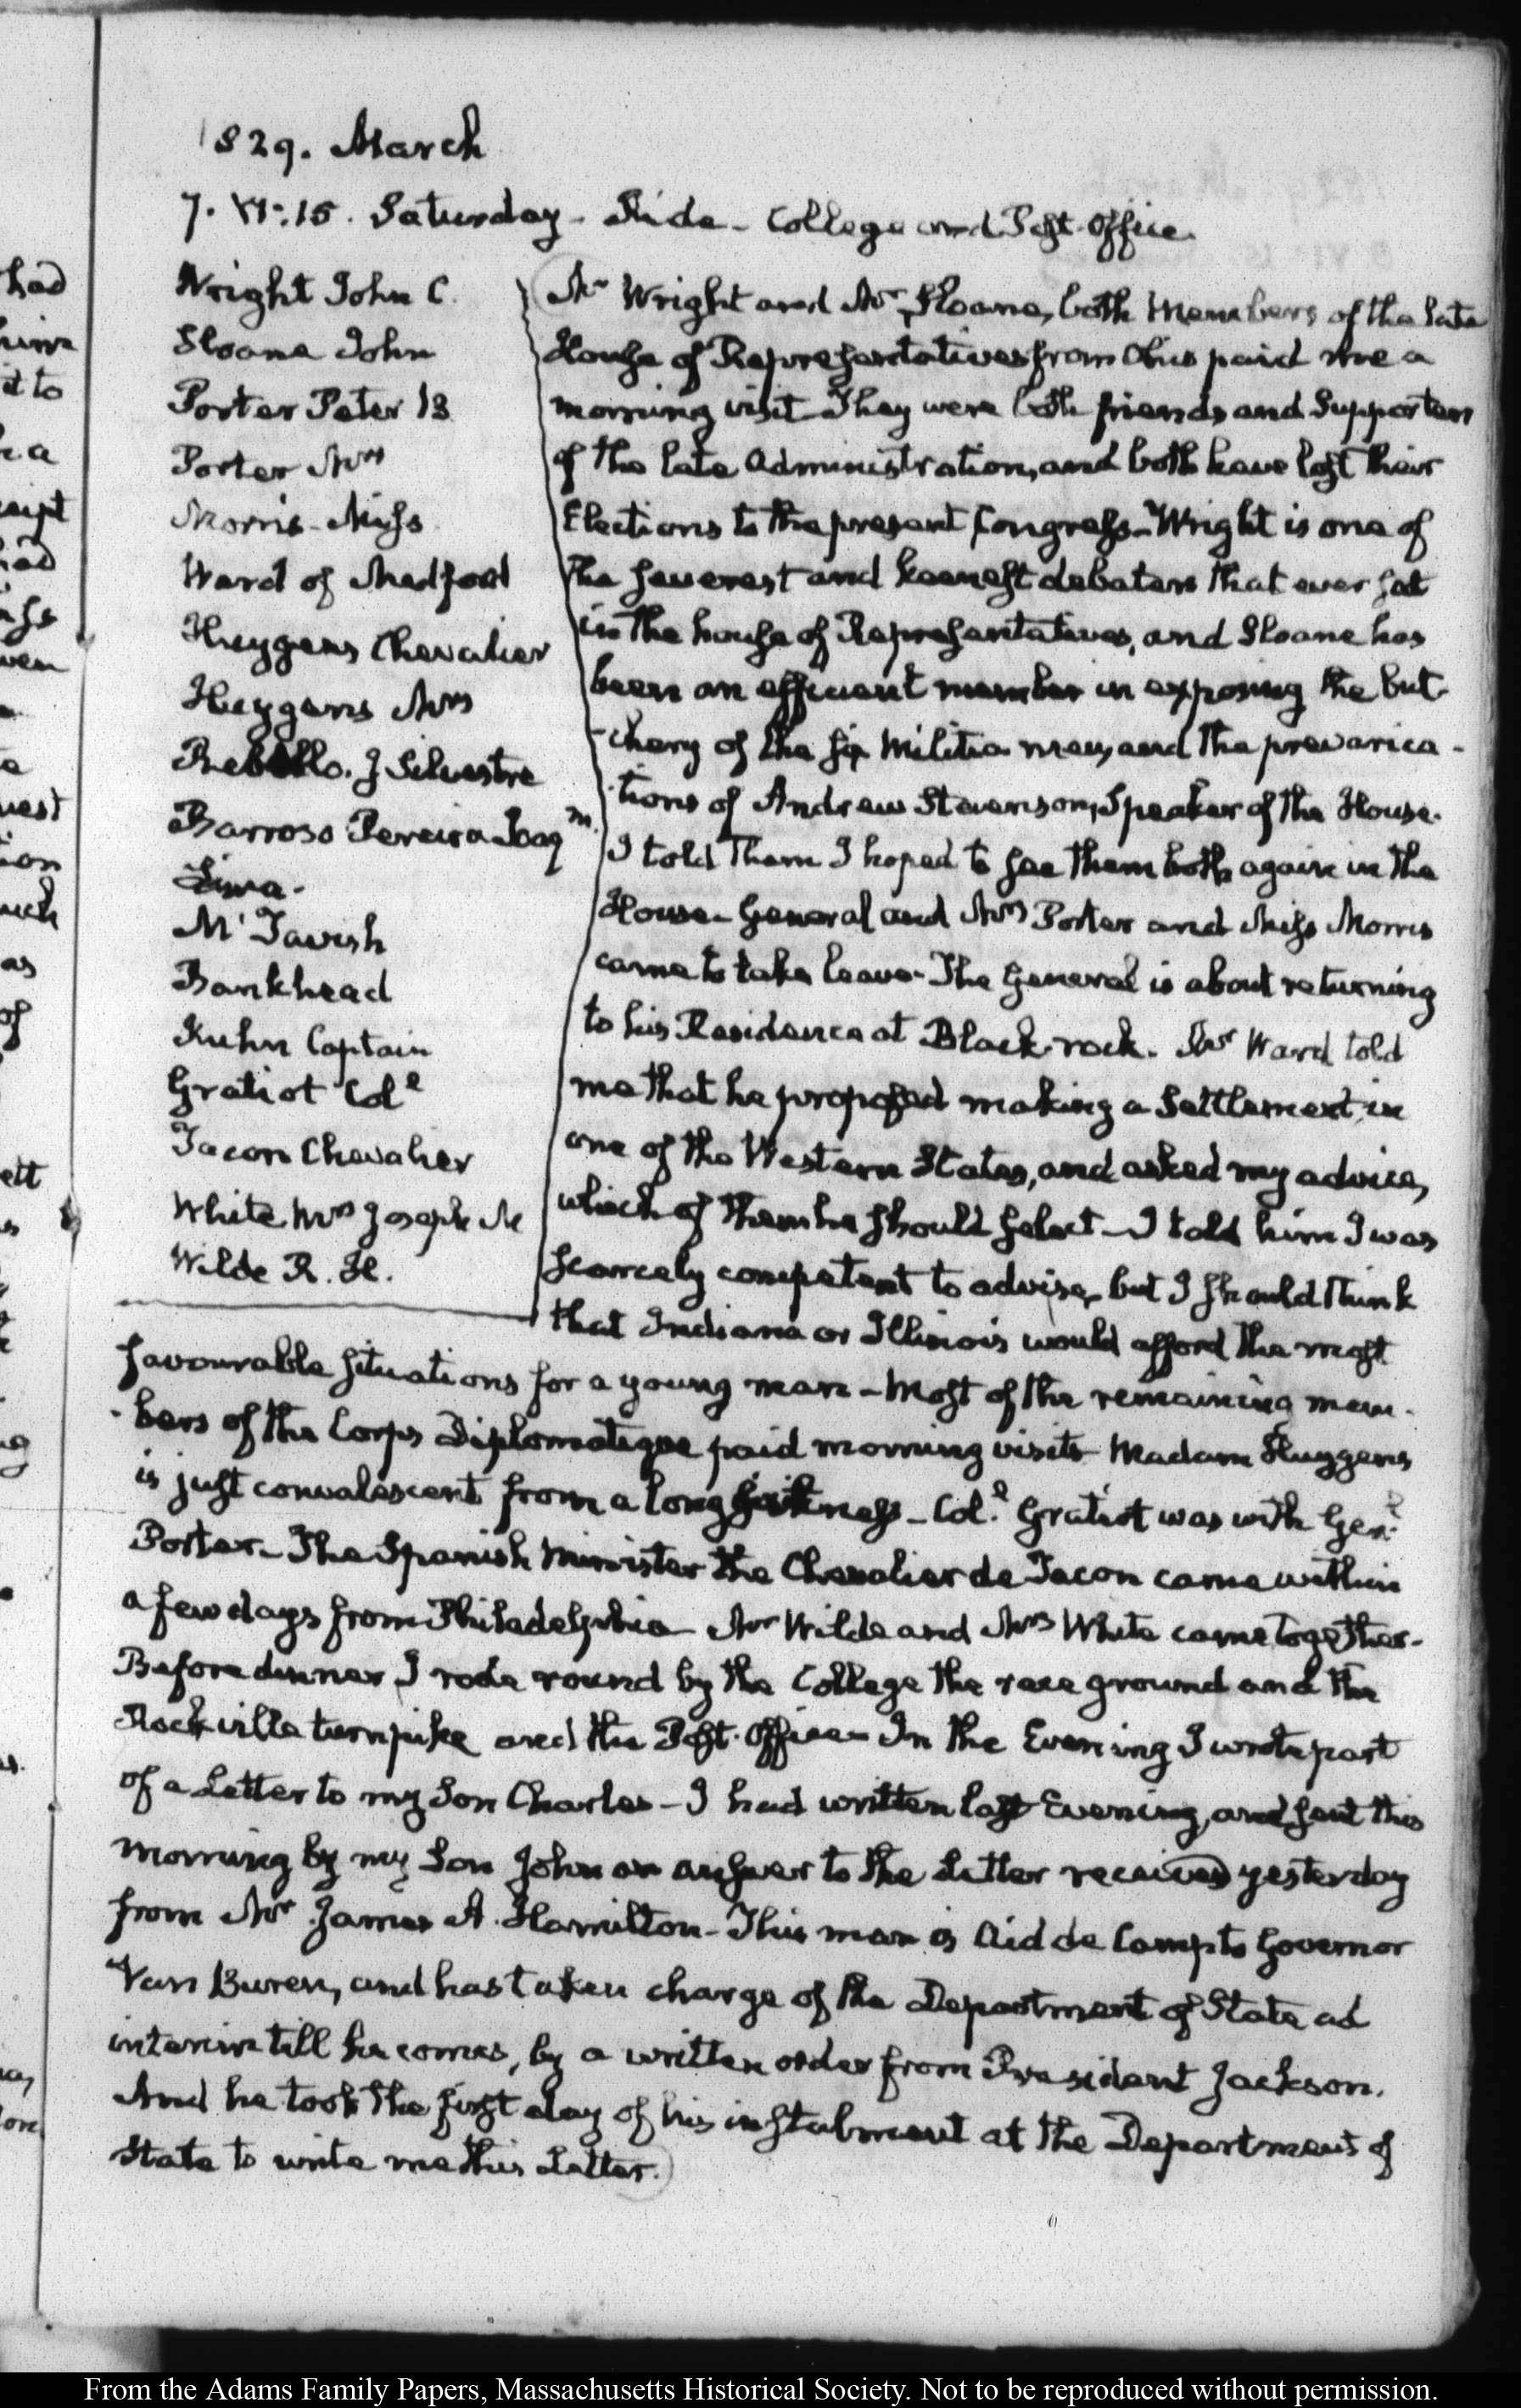 1829. March
7. VI:15. Saturday - Ride - College and Post-Office.
Wright John C.
Sloane John
Porter Peter B
Porter Mrs
Morris - Miss
Ward of Medford
Huygens Chevalier
Huygens Mrs
Rebello. J Silvestre
Barroso Pereira Joaqm.
Lima.
Mc Tavish
Bankhead
Kuhn Captain
Gratiot Coll
Tacon Chevalier
White Mrs Joseph M
Wilde R. H.
Mr Wright and Mr Sloane, both Members of the late
House of Representatives from Ohio paid me a
morning visit They were both friends and Supporters
of the late Administration, and both have lost their
Elections to the present Congress - Wright is one of
the severest and keenest debaters that ever sat
in the house of Representatives, and Sloane has
been an efficient member in exposing the but-
-chery of the six Militia men, and the prevarica-
-tions of Andrew Stevenson, Speaker of the House.
I told them I hoped to see them both again in the
House - General and Mrs Porter and Miss Morris
came to take leave - The General is about returning
to his Residence at Black-rock. Mr Ward told
me that he proposed making a Settlement in
one of the Western States, and asked my advice,
which of them he should select - I told him I was
scarcely competent to advise, but I should think
that Indiana or Illinois would afford the most
favourable situations for a young man - Most of the remaining mem-
-bers of the Corps Diplomatique paid morning visits - Madam Huygens
is just convalescent from a long sickness - Col.l Gratiot was with Gen.l
Porter - The Spanish Minister the Chevalier de Tacon came within
a few days from Philadelphia - Mr Wilde and Mrs White came together -
Before dinner I rode round by the College the race ground and the
Rockville turnpike and the Post-Office - In the Evening I wrote part
of a Letter to my Son Charles - I had written last Evening, and sent this
morning by my Son John an answer to the Letter received yesterday
from Mr James A. Hamilton - This man is Aid de Camp to Governor
Van Buren, and has taken charge of the Department of State ad
interim till he comes, by a written order from President Jackson.
And he took the first day of his instalment at the Department of
State to write me this Letter.
From the Adams Family Papers, Massachusetts Historical Society. Not to be reproduced without permission.